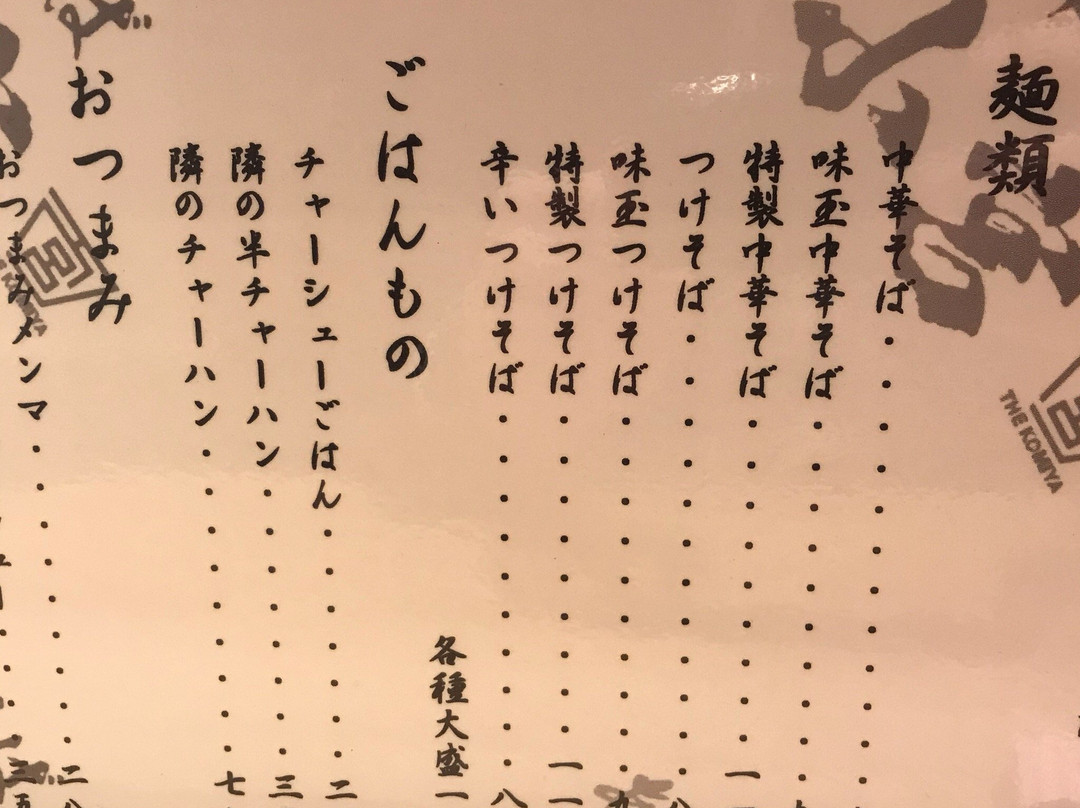 麺類
中華そば・・・・・・・・・・・・
味玉中華そば・・・・・・・・・・
特製中華そば・・・・・・・・・一
つけそば・・・・・・・・・・・・
味玉つけそば・・・・・・・・・・九
特製つけそば・・・・・・・・・一一
辛いつけそば・・・・・・・・・・八
各種大盛一
ごはんもの
チャーシューごはん・・・・・・・二
隣の半チャーハン・・・・・・・・三
隣のチャーハン・・・・・・・・・七
おつまみ
おつまみメンマ・・・・・・・・・二八
THE KOMIYA